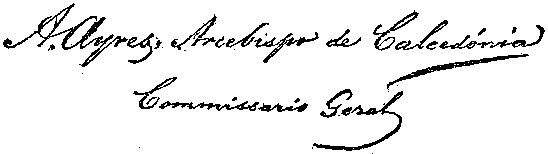 A. Ayres, Arcebispo de Calcedónia
Commissario Geral